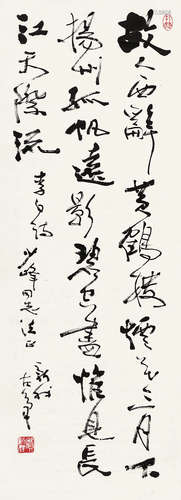 故人西辭黃鶴樓煙花三月下
揚州孤帆遠影碧空盡惟見長
江天際流
李白詩
少峰同志法正
新我左筆